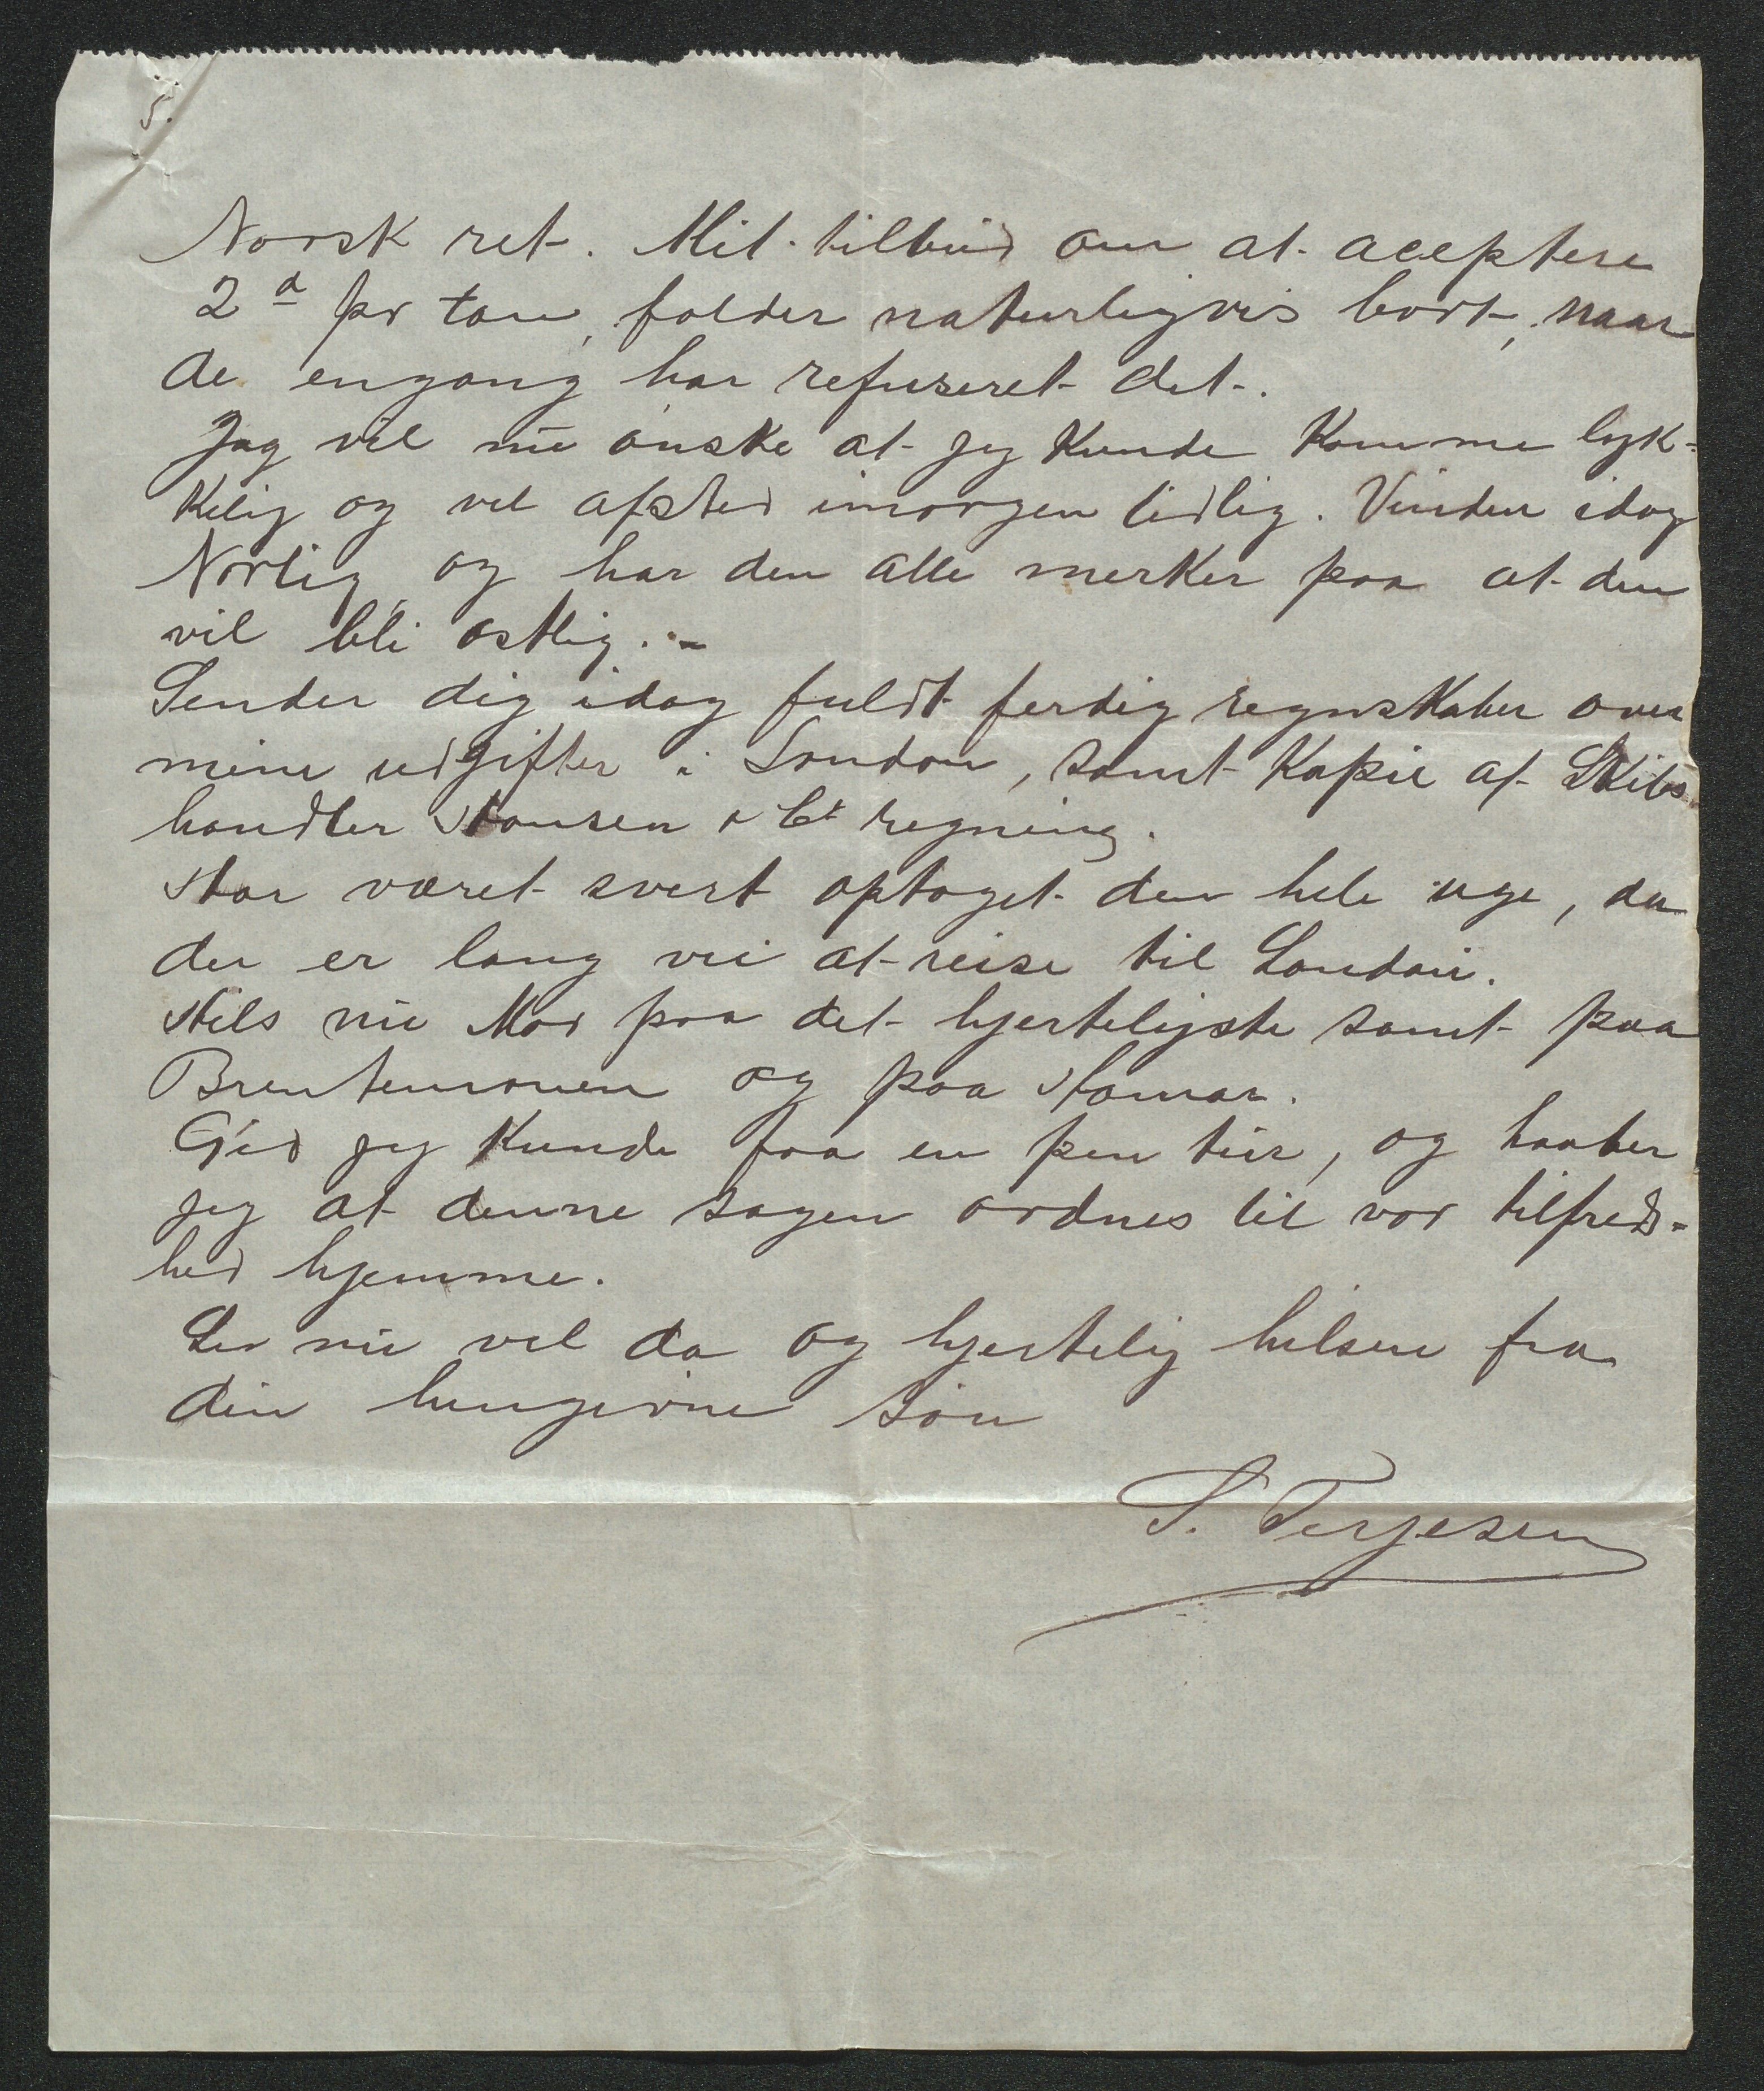 5.
Norsk ret. Mit tilbud om at aceptere
2d pr ton, falder naturligvis bort, naar
de engang har refuseret det.
Jeg vil nu ønske at jeg kunde komme lyk-
kelig og vel afsted imorgen tidlig. Vinden idag
Nordlig, og har den alle merker paa at den
vil bli østlig. -
Sender dig idag fuldt ferdig regnskaber over
mine udgifter i London, samt Kopie af Skibs
handler Hansen & Co regning.
Har været svert optaget den hele uge, da
der er lang vei at reise til London.
Hils nu Mor paa det hjerteligste samt paa
og paa Homar.
Gid jeg kunde faa en pen tur, og haaber
jeg at denne sagen ordnes til vor tilfreds-
hed hjemme.
Lev nu vel da og hjertelig hilsen fra
din hengivne søn
S. Terjesen